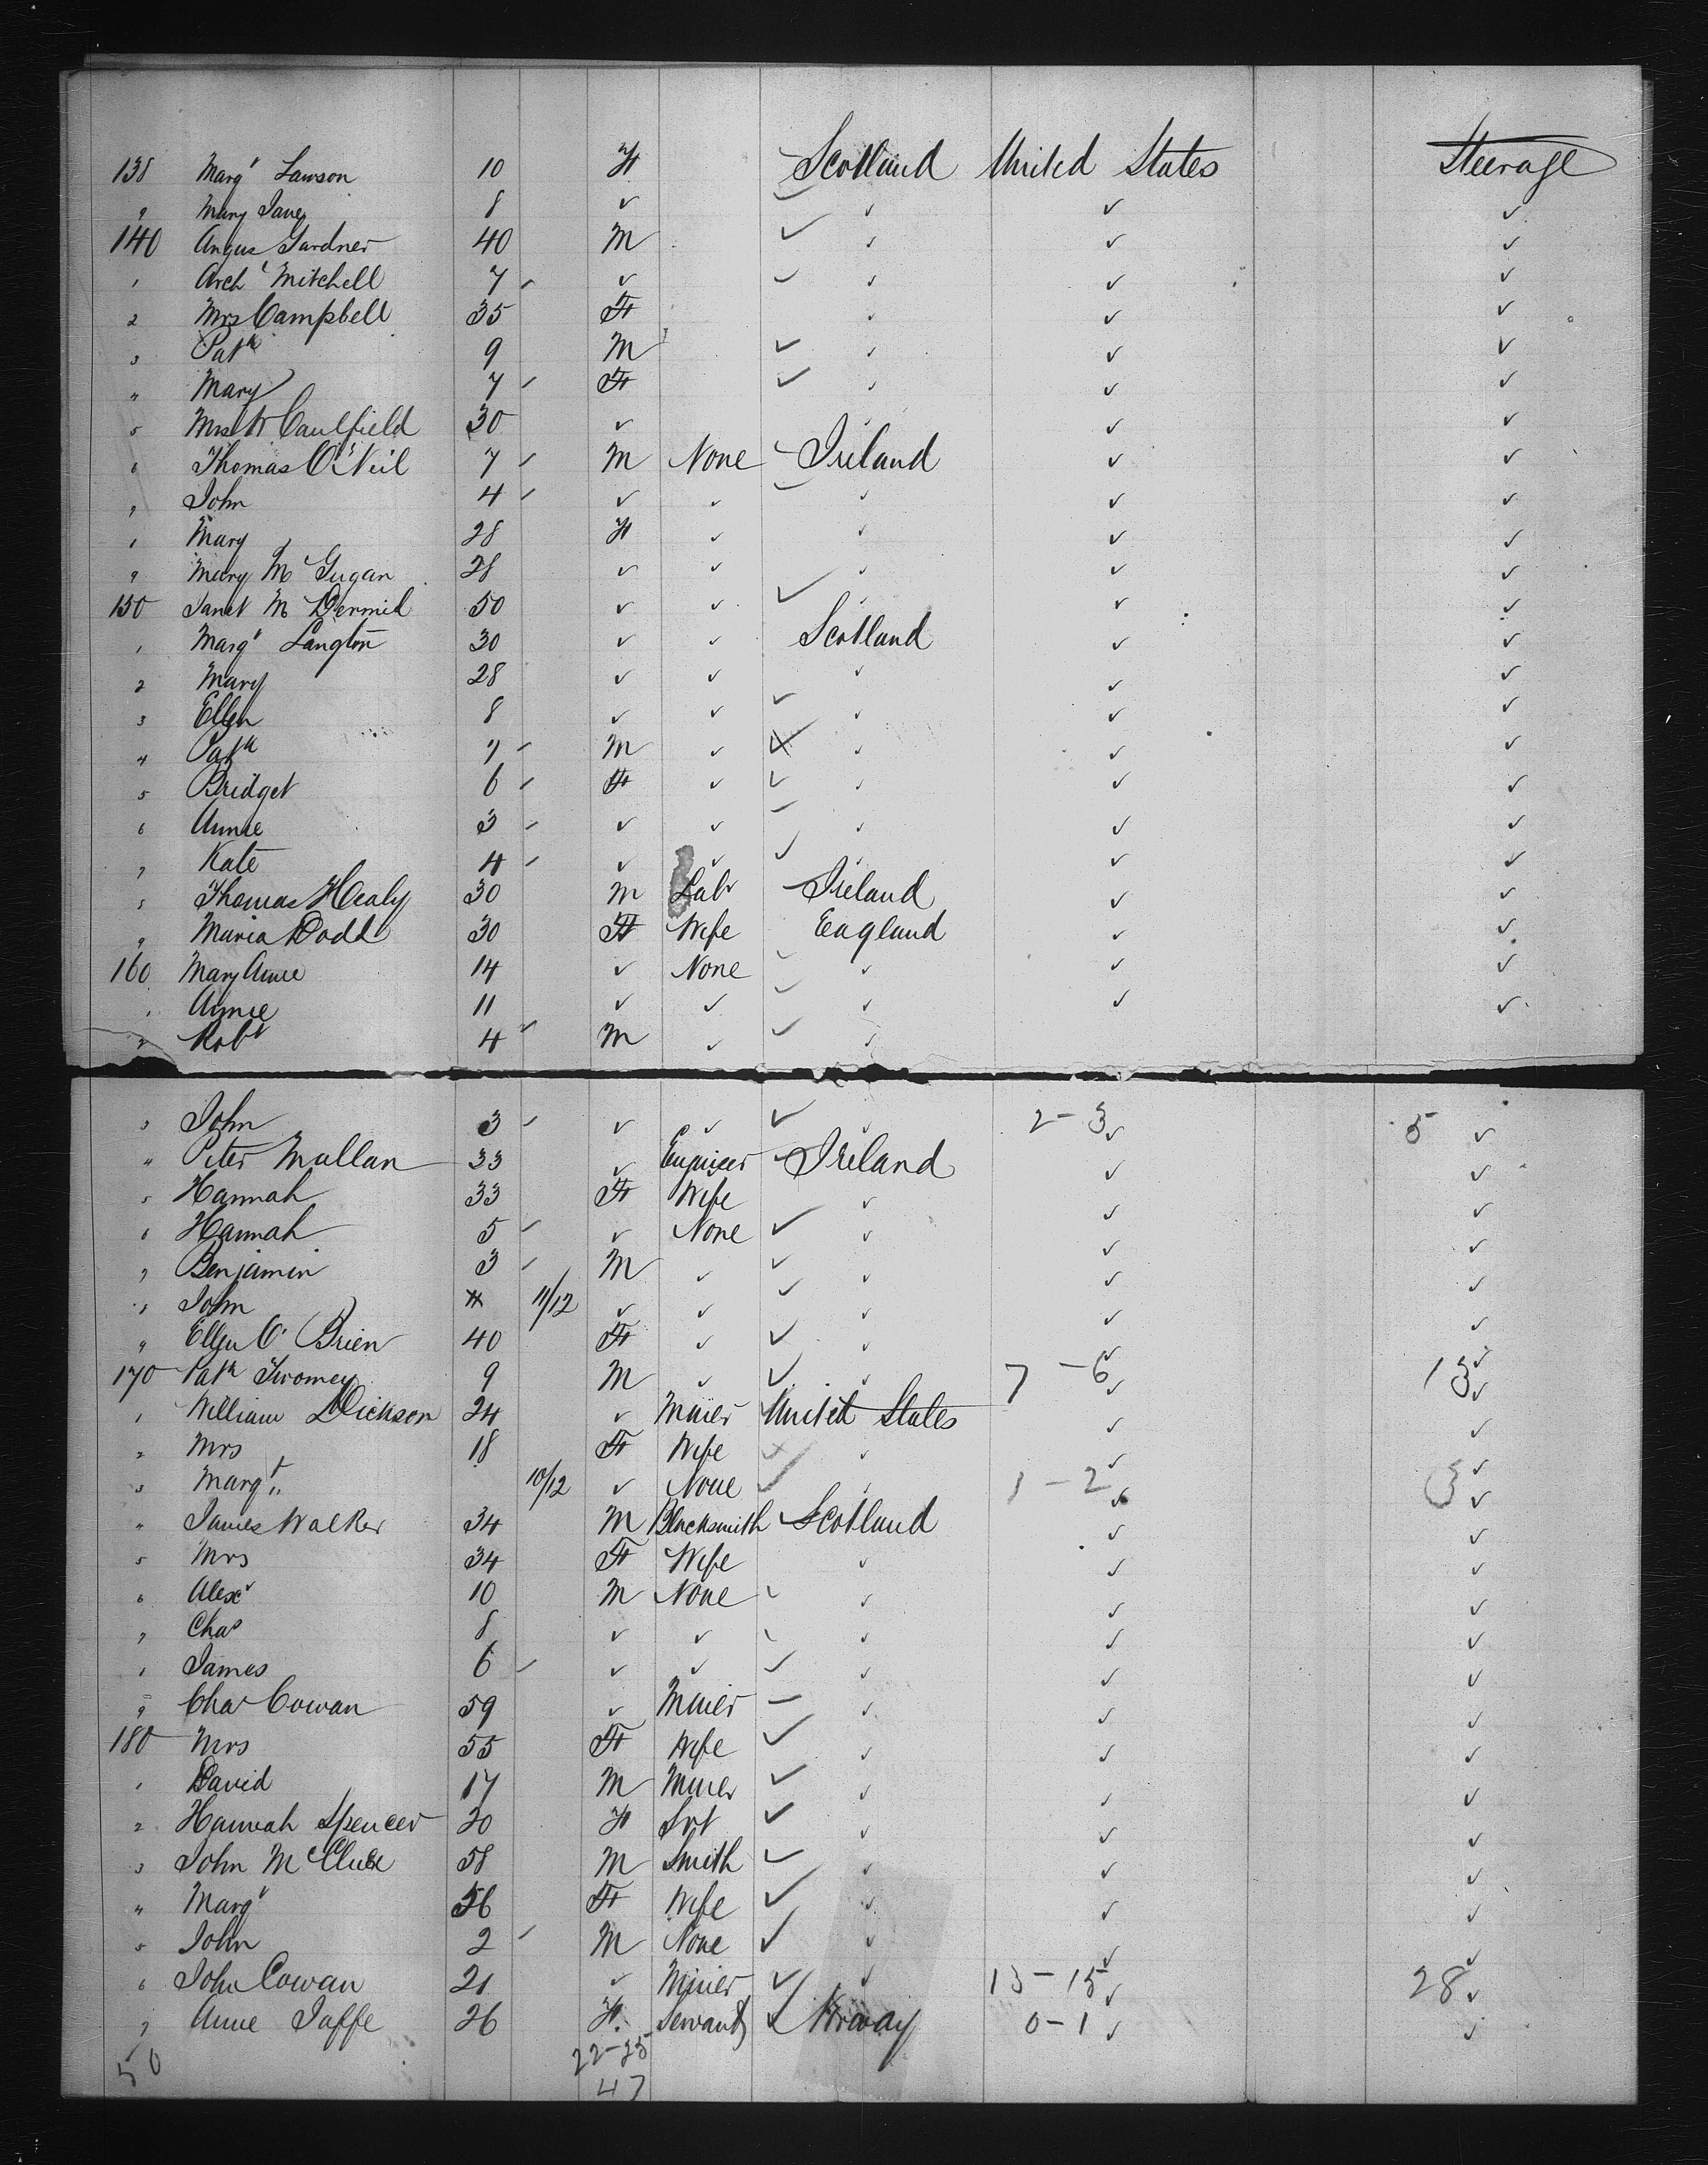 138 Margt Lawson 10 F Scotland United States Steerage
9 Mary Jane 8 ✓ ✓ ✓ ✓
140 Angus Gardner 40 M ✓ ✓ ✓
1 Archd Mitchell 7 ✓ ✓ ✓ ✓
2 Mrs Campbell 35 F ✓ ✓ ✓
3 Patk 9 M ✓ ✓ ✓
" Mary 7 F ✓ ✓ ✓
5 Mrs Caulfield 30 ✓ ✓ ✓
6 Thomas O'Neil 7 M None Ireland ✓ ✓
7 John 4 ✓ ✓ ✓ ✓ ✓
8 Mary 28 F ✓ ✓ ✓ ✓
9 Mary Mc Gugan 28 ✓ ✓ ✓ ✓ ✓
150 Janet Mc Dermid 50 ✓ ✓ ✓ ✓ ✓
1 Margt Langton 30 ✓ ✓ Scotland ✓ ✓
2 Mary 28 ✓ ✓ ✓ ✓ ✓
3 Ellen 8 ✓ ✓ ✓ ✓ ✓
4 Patk 7 M ✓ ✓ ✓ ✓
5 Bridget 6 F ✓ ✓ ✓ ✓
6 Annie 3 ✓ ✓ ✓ ✓ ✓
7 Kate 4 ✓ ✓ ✓ ✓ ✓
8 Thomas Healy 30 M Labr Ireland ✓ ✓
9 Maria Dodd 30 F Wife England ✓ ✓
160 Mary Anne 14 ✓ None ✓ ✓ ✓
1 Annie 11 ✓ ✓ ✓ ✓ ✓
2 Robt 4 M ✓ ✓
3 John 3 ✓ ✓ ✓ 2-3 ✓ 5 ✓
" Peter Mallan 33 ✓ Engineer Ireland ✓ ✓
5 Hannah 33 F Wife ✓ ✓ ✓
6 Hannah 5 ✓ None ✓ ✓ ✓
7 Benjamin 3 M ✓ ✓ ✓ ✓
8 John 11/12 ✓ ✓ ✓ ✓ ✓
9 Ellen O'Brien 40 F ✓ ✓ ✓ ✓
170 Patk Twomey 9 M ✓ ✓ 7-6 ✓ 13 ✓
1 William Dickson 24 ✓ Miner United States ✓ ✓
2 Mrs 18 F Wife ✓ ✓ ✓
3 Margt " 10/12 ✓ None ✓ 1-2 ✓ 3 ✓
" James Walker 34 M Blacksmith Scotland ✓ ✓
5 Mrs 34 F Wife ✓ ✓ ✓
6 Alexr 10 M None ✓ ✓ ✓
7 Chas 8 ✓ ✓ ✓ ✓ ✓
8 James 6 ✓ ✓ ✓ ✓ ✓
9 Chas Cowan 59 ✓ Miner ✓ ✓ ✓
180 Mrs 55 F Wife ✓ ✓ ✓
1 David 17 M Miner ✓ ✓ ✓
2 Hannah Spencer 20 F Svt ✓ ✓ ✓
3 John McClure 58 M Smith ✓ ✓ ✓
" Margt 56 F Wife ✓ ✓ ✓
5 John 2 M None ✓ ✓ ✓
6 John Cowan 21 ✓ Miner ✓ 13-15 ✓ 28 ✓
7 Anne Jaffe 26 F Servant Norway 0-1 ✓ ✓
50 22-25
47